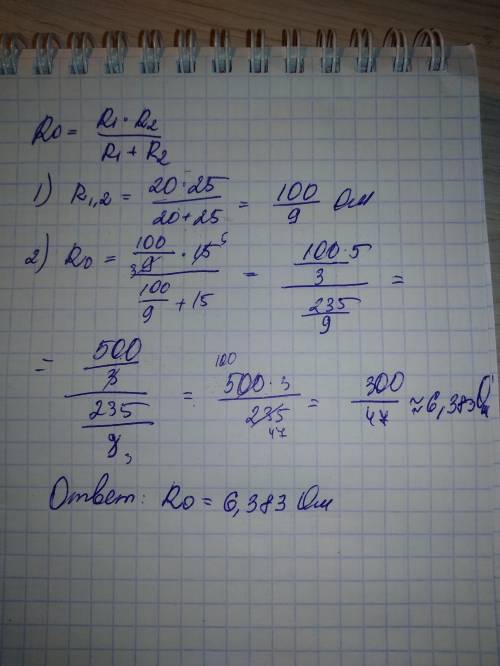 R0 = R1 · R2 / R1 + R2
1) R1,2 = 20·25 / 20+25 = 100/9 Ом
2) R0 = 100/9 3 · 15 5 / 100/9 + 15 = 100·5/3 / 235/9 =
= 500/3 / 235/9 3 = 100 500·3 / 235 47 = 300/47 ≈ 6,383 Ом
Ответ: R0 = 6,383 Ом